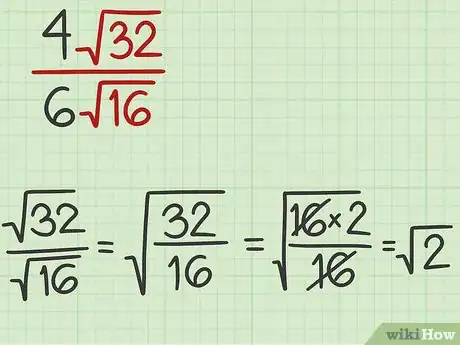 4√32
6√16
√32/√16 = √(32/16) = √(16×2/16) = √2
wikiHow